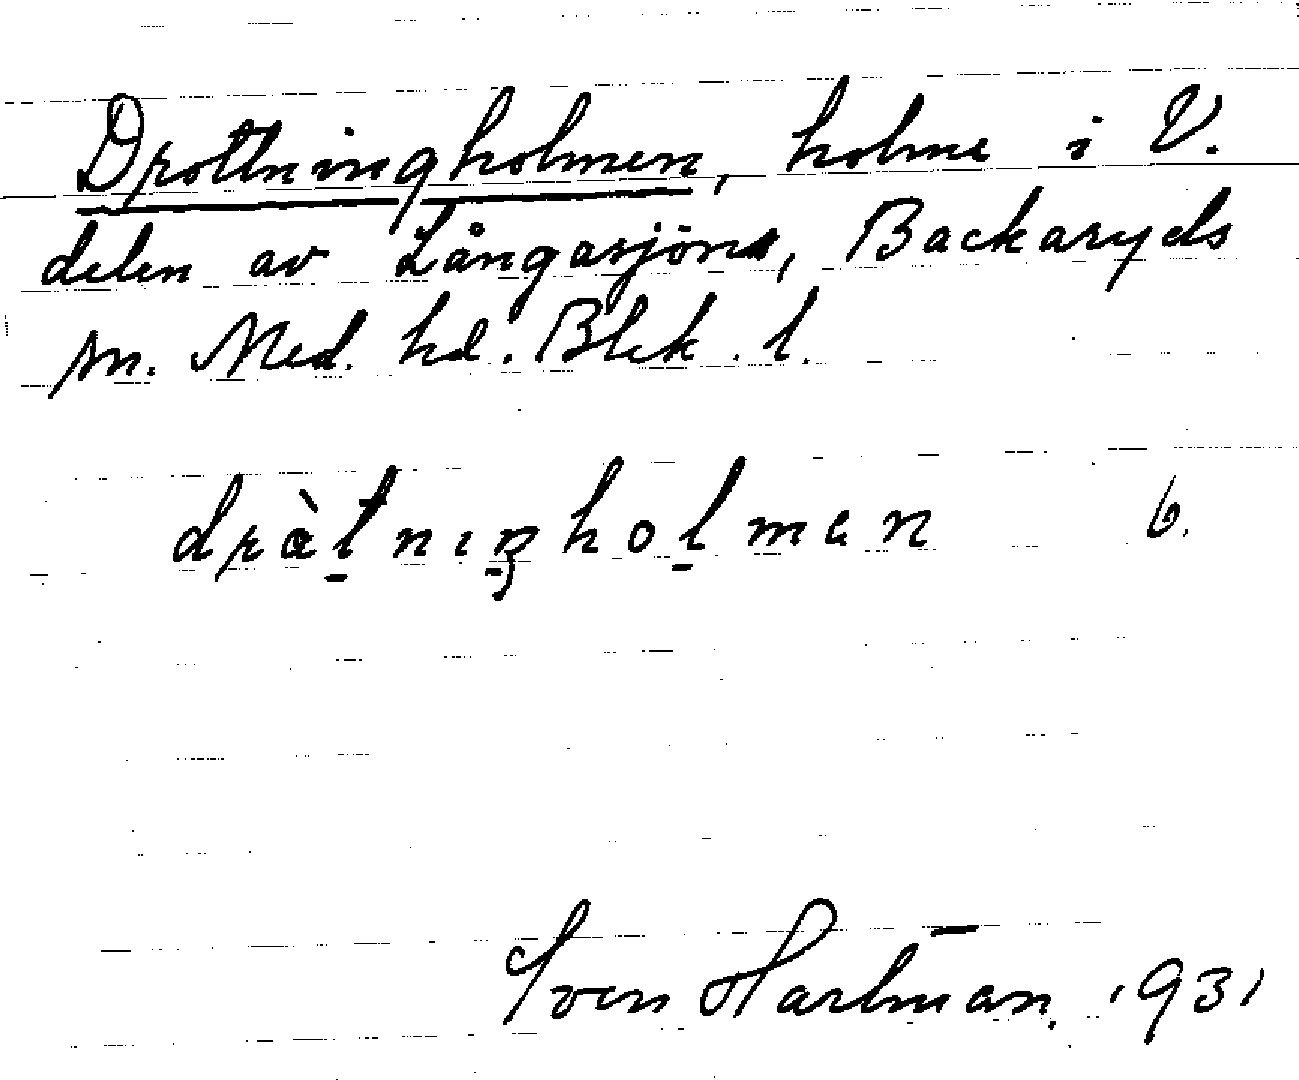 Drottningholmen, holme i V.
delen av Långasjön, Backaryds
sn. Med. hd. Blek. l.
dràtnıŋholmən b.
Sven Hartman. 1931